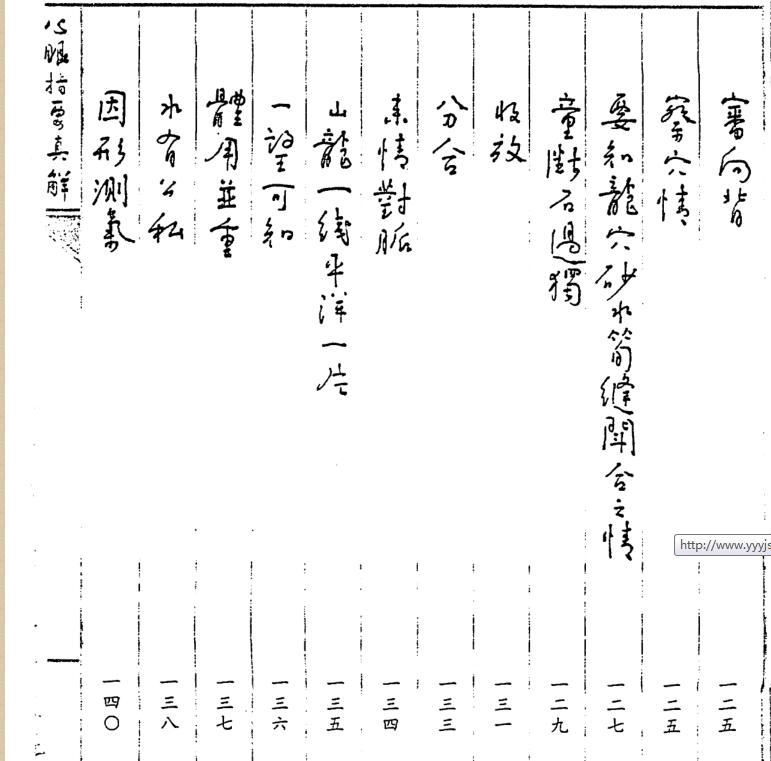 審向背 一二五
察穴情 一二五
要知龍穴砂水筍縫鬥合之情 一二七
童斷石過獨 一二九
收放 一三一
分合 一三三
來情對脈 一三四
山龍一綫平洋一片 一三五
一望可知 一三六
體用並重 一三七
水有公私 一三八
因形測氣 一四〇
心眼指要真解
http://www.yyyjs